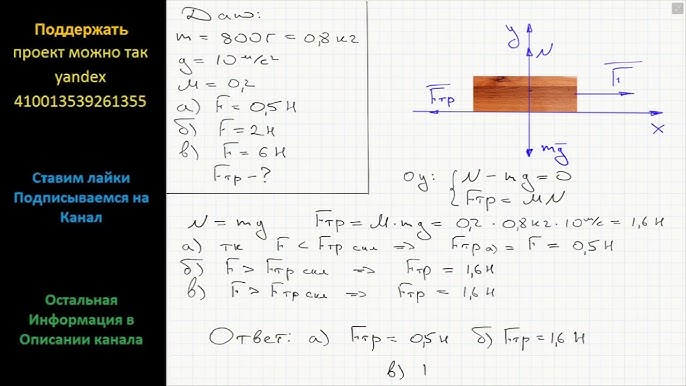 Поддержать
проект можно так
yandex
410013539261355
Ставим лайки
Подписываемся на
Канал
Остальная
Информация в
Описании канала
Дано:
m = 800г = 0,8 кг
g = 10 м/с²
м = 0,2
а) F = 0,5 Н
б) F = 2 Н
в) F = 6 Н
Fтр - ?
y
N
Fтр
F₁
x
mg
оy: { N - mg = 0
Fтр = мN
N = mg Fтр = м·mg = 0,2 · 0,8 кг · 10 м/с = 1,6 Н
а) тк F < Fтр скл => Fтр а) = F = 0,5 Н
б) F > Fтр скл => Fтр = 1,6 Н
в) F > Fтр скл => Fтр = 1,6 Н
Ответ: а) Fтр = 0,5 Н б) Fтр = 1,6 Н
в) 1